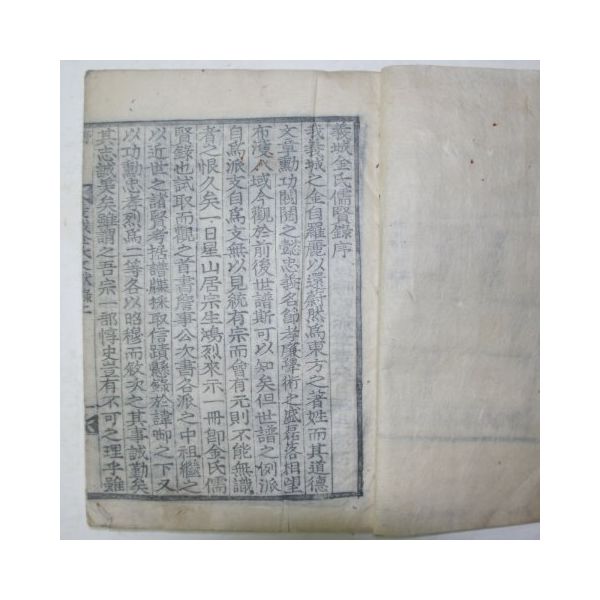 義城金氏儒賢錄序
我義城之金自羅麗以還蔚然爲東方之著姓而其道德
文章勳功閥閱之懿忠義名節孝廉學術之盛磊落相望
布濩人域今觀於前後世譜斯可以知矣但世譜之例派
自爲派支自爲支無以見統有宗而會有元則不能無識
者之恨久矣一日星山居宗生鴻烈來示一冊卽金氏儒
賢錄也試取而觀之首書詹事公次書各派之中祖繼之
以近世之諸賢考據譜牒採取信蹟懸錄於諱啣之下又
以功勳忠孝烈爲一等各以昭穆而敘次之其事誠勤矣
其忠誠美矣雖謂之吾宗一部惇史豈有不可之理乎雖